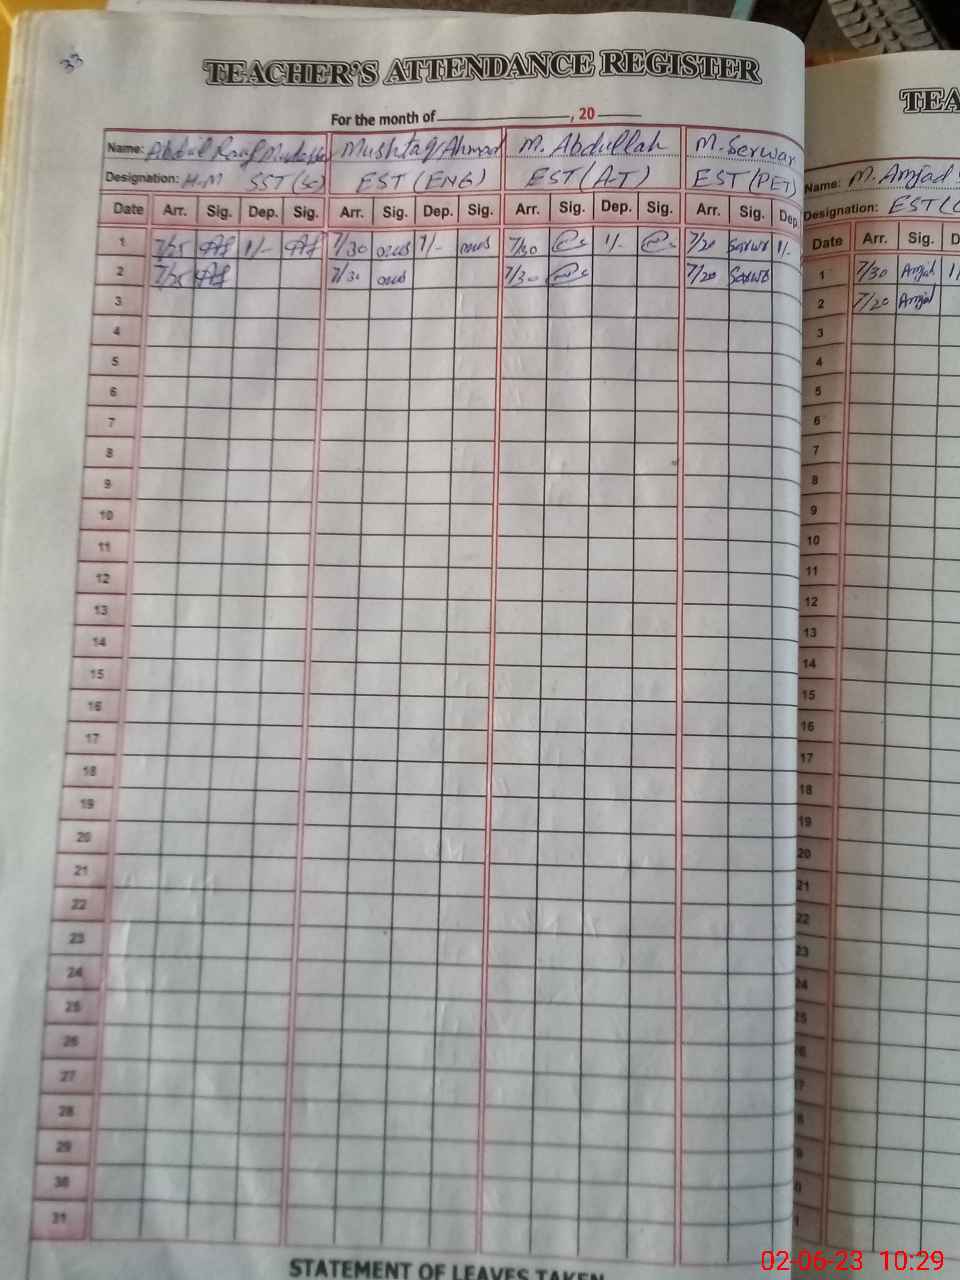 33
TEACHER'S ATTENDANCE REGISTER
For the month of ______, 20 ____
Name: Abdul Rauf Mushtaq Ahmad M. Abdullah M. Serwar
Designation: H.M SST (Sc) EST (ENG) EST (A-T) EST (PET)
Date Arr. Sig. Dep. Sig. Arr. Sig. Dep. Sig. Arr. Sig. Dep. Sig. Arr. Sig. Dep
1 7/25 1/- 7/30 1/- 7/30 1/- 7/20 Sarwar 1/-
2 7/25 7/30 7/30 7/20 Sarwar
3
4
5
6
7
8
9
10
11
12
13
14
15
16
17
18
19
20
21
22
23
24
25
26
27
28
29
30
31
STATEMENT OF LEAVES TAKEN
TEA
Name: M. Amjad
Designation: EST (
Date Arr. Sig. D
1 7/30 Amjad 1/
2 7/20 Amjad
3
4
5
6
7
8
9
10
11
12
13
14
15
16
17
18
19
20
21
22
23
24
25
02-06-23 10:29